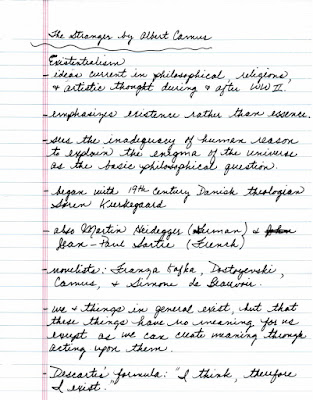 The Stranger by Albert Camus
Existentialism
- ideas current in philosophical, religious,
& artistic thought during & after WW II.
- emphasizes existence rather than essence.
- sees the inadequacy of human reason
to explain the enigma of the universe
as the basic philosophical question.
- began with 19th century Danish theologian
Søren Kierkegaard
- also Martin Heidegger (German) &
Jean-Paul Sartre (French)
- novelists: Franza Kafka, Dostoyevski,
Camus, & Simone de Beauvoir.
- we & things in general exist, but that
these things have no meaning for us
except as we can create meaning through
acting upon them.
- Descartes' formula: "I think, therefore
I exist."